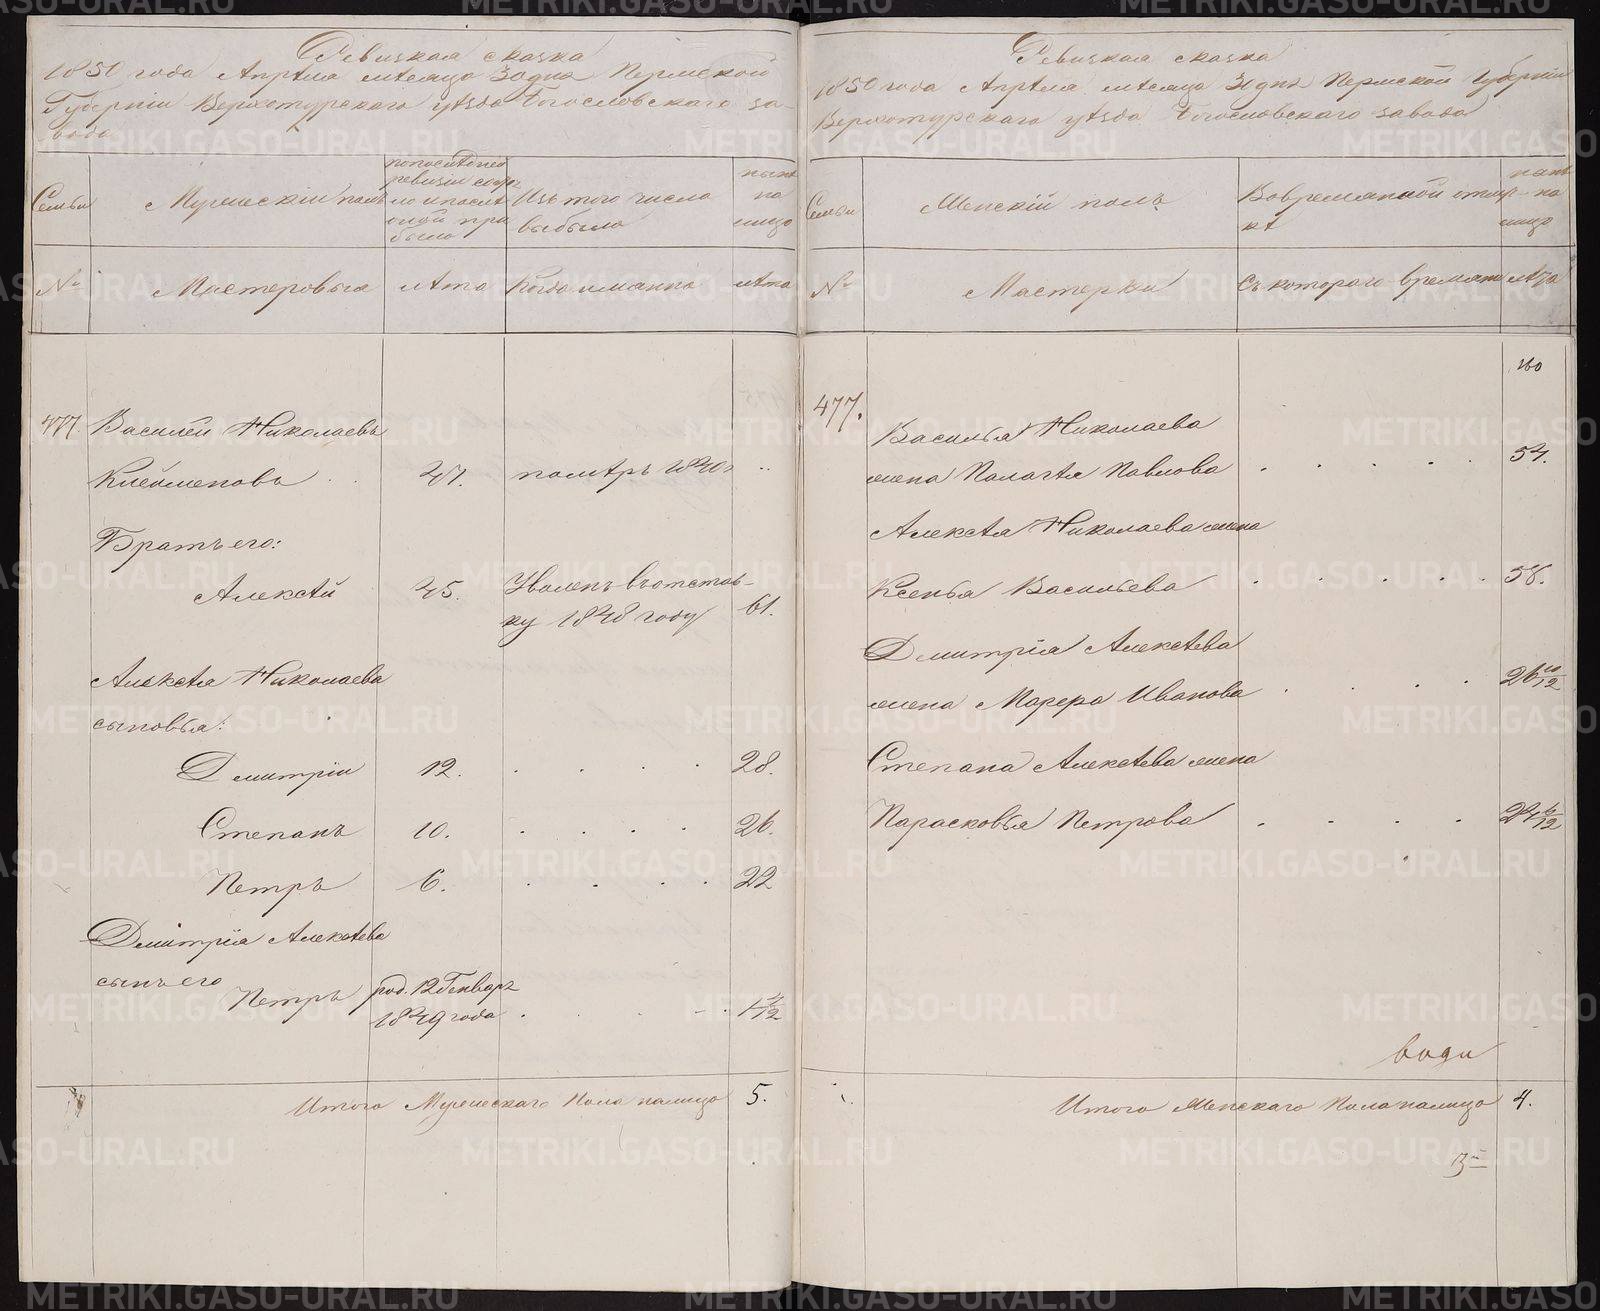 Ревизкая сказка
1850 года Апрѣля мѣсяца 30 дня Пермской
Губерніи Верхотурскаго уѣзда Богословскаго за-
вода
Семьи
Мужескій полъ
по последней
ревизіи состо
было
Изъ того числа
выбыло
нынѣ
на
лицо
№
Мастеровыя
лѣта
Когда имянно
лѣта
477.
Василей Николаевъ
Клейменовъ
47.
помѣръ 1840
Братъ его:
Алексѣй
45.
Уволенъ въ отстав-
ку 1848 году
61.
Алексѣя Николаева
сыновья:
Дмитріи
12.
28.
Степанъ
10.
26.
Петръ
6.
22
Дмитрія Алексѣева
сынъ его
Петръ
род. 12 Генваря
1849 года
Итого Мужескаго Пола налицо
5.
Ревизкая сказка
1850 года Апрѣля мѣсяца 30 дня Пермской Губерніи
Верхотурскаго уѣзда Богословскаго завода
Семьи
Женскій полъ
Во временной отлуч-
кѣ
нынѣ
на
лицо
№
Мастерки
Съ котораго времяни
лѣта
477.
Василья Николаева
жена Палагѣя Павлова
54.
Алексѣя Николаева жена
Ксенья Васильева
58.
Дмитрія Алексѣева
жена Марѳра Иванова
26 10/12
Степана Алексѣева жена
Парасковья Петрова
Итого Женскаго Пола налицо
4.
METRIKI.GASO-URAL.RU